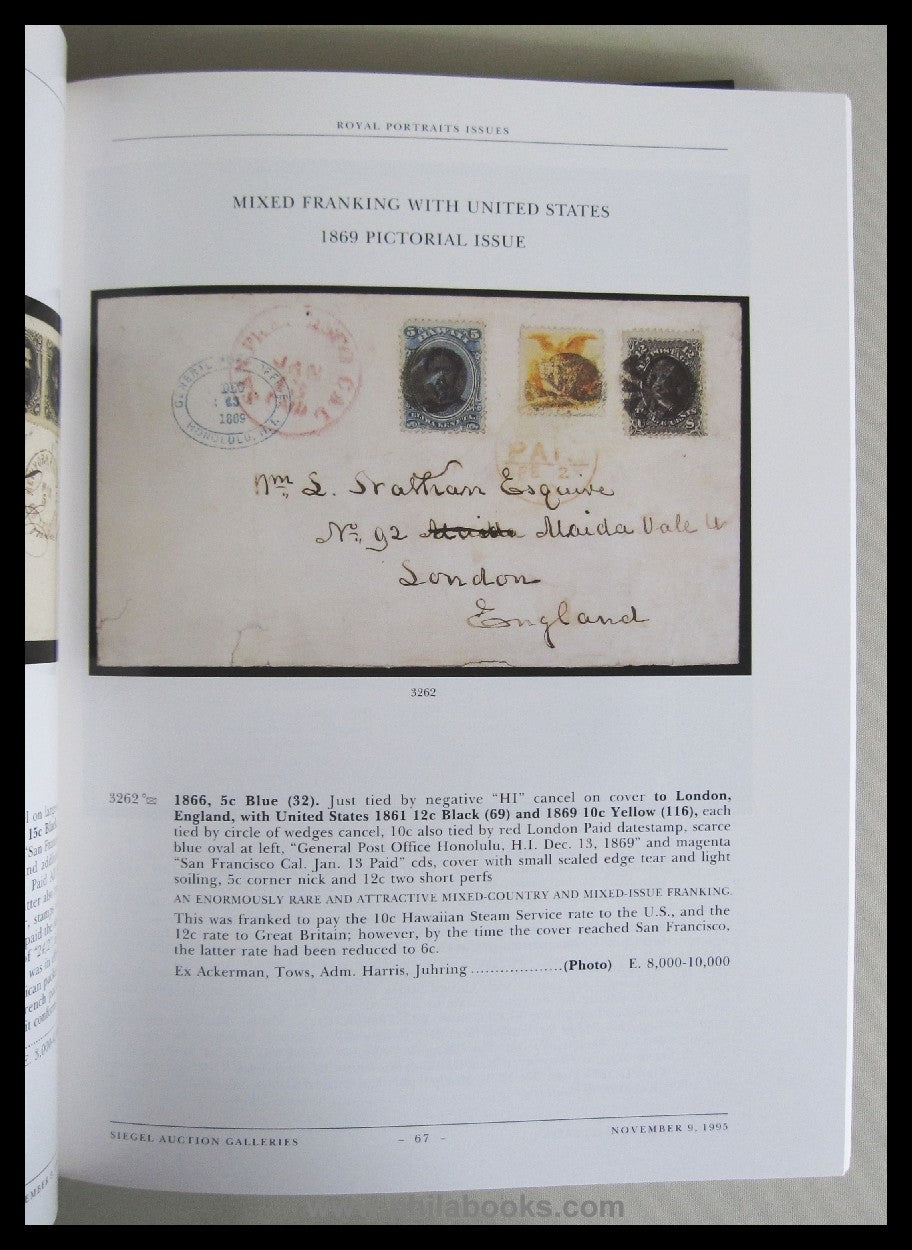 ROYAL PORTRAITS ISSUES
MIXED FRANKING WITH UNITED STATES
1869 PICTORIAL ISSUE
5 HAWAII 5
12 12
U CENTS S
GENERAL POST OFFICE
DEC
13
1869
HONOLULU, H.I.
SAN FRANCISCO CAL
JAN
PAID
Wm. L. Nathan Esquire
No. 92 Maida Maida Vale W
London
England
3262
3262 1866, 5c Blue (32). Just tied by negative “HI” cancel on cover to London,
England, with United States 1861 12c Black (69) and 1869 10c Yellow (116), each
tied by circle of wedges cancel, 10c also tied by red London Paid datestamp, scarce
blue oval at left, “General Post Office Honolulu, H.I. Dec. 13, 1869” and magenta
“San Francisco Cal. Jan. 13 Paid” cds, cover with small sealed edge tear and light
soiling, 5c corner nick and 12c two short perfs
AN ENORMOUSLY RARE AND ATTRACTIVE MIXED-COUNTRY AND MIXED-ISSUE FRANKING.
This was franked to pay the 10c Hawaiian Steam Service rate to the U.S., and the
12c rate to Great Britain; however, by the time the cover reached San Francisco,
the latter rate had been reduced to 6c.
Ex Ackerman, Tows, Adm. Harris, Juhring ...................(Photo) E. 8,000-10,000
SIEGEL AUCTION GALLERIES
- 67 -
NOVEMBER 9, 1995
www.philabooks.com